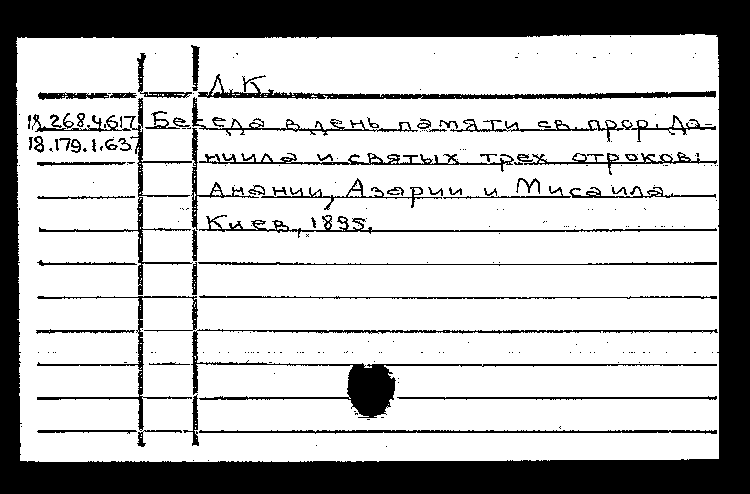 Л.К.
18.268.4.617 Беседа в день памяти св. прор. Да-
18.179.1.637
ниила и святых трех отроков:
Анании, Азарии и Мисаила
Киев, 1895.